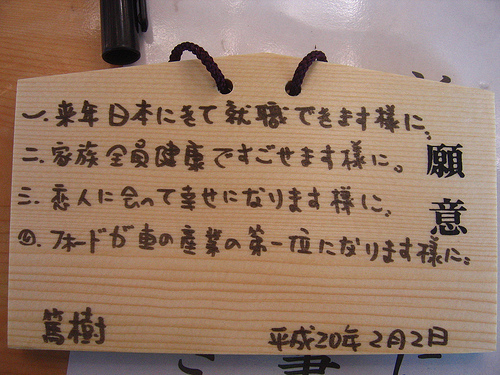 願意
一. 来年日本にきて就職できます様に。
二. 家族全員健康ですごせます様に。
三. 恋人に会って幸せになります様に。
四. フォードが車の産業の第一位になります様に。
篤樹
平成20年2月2日